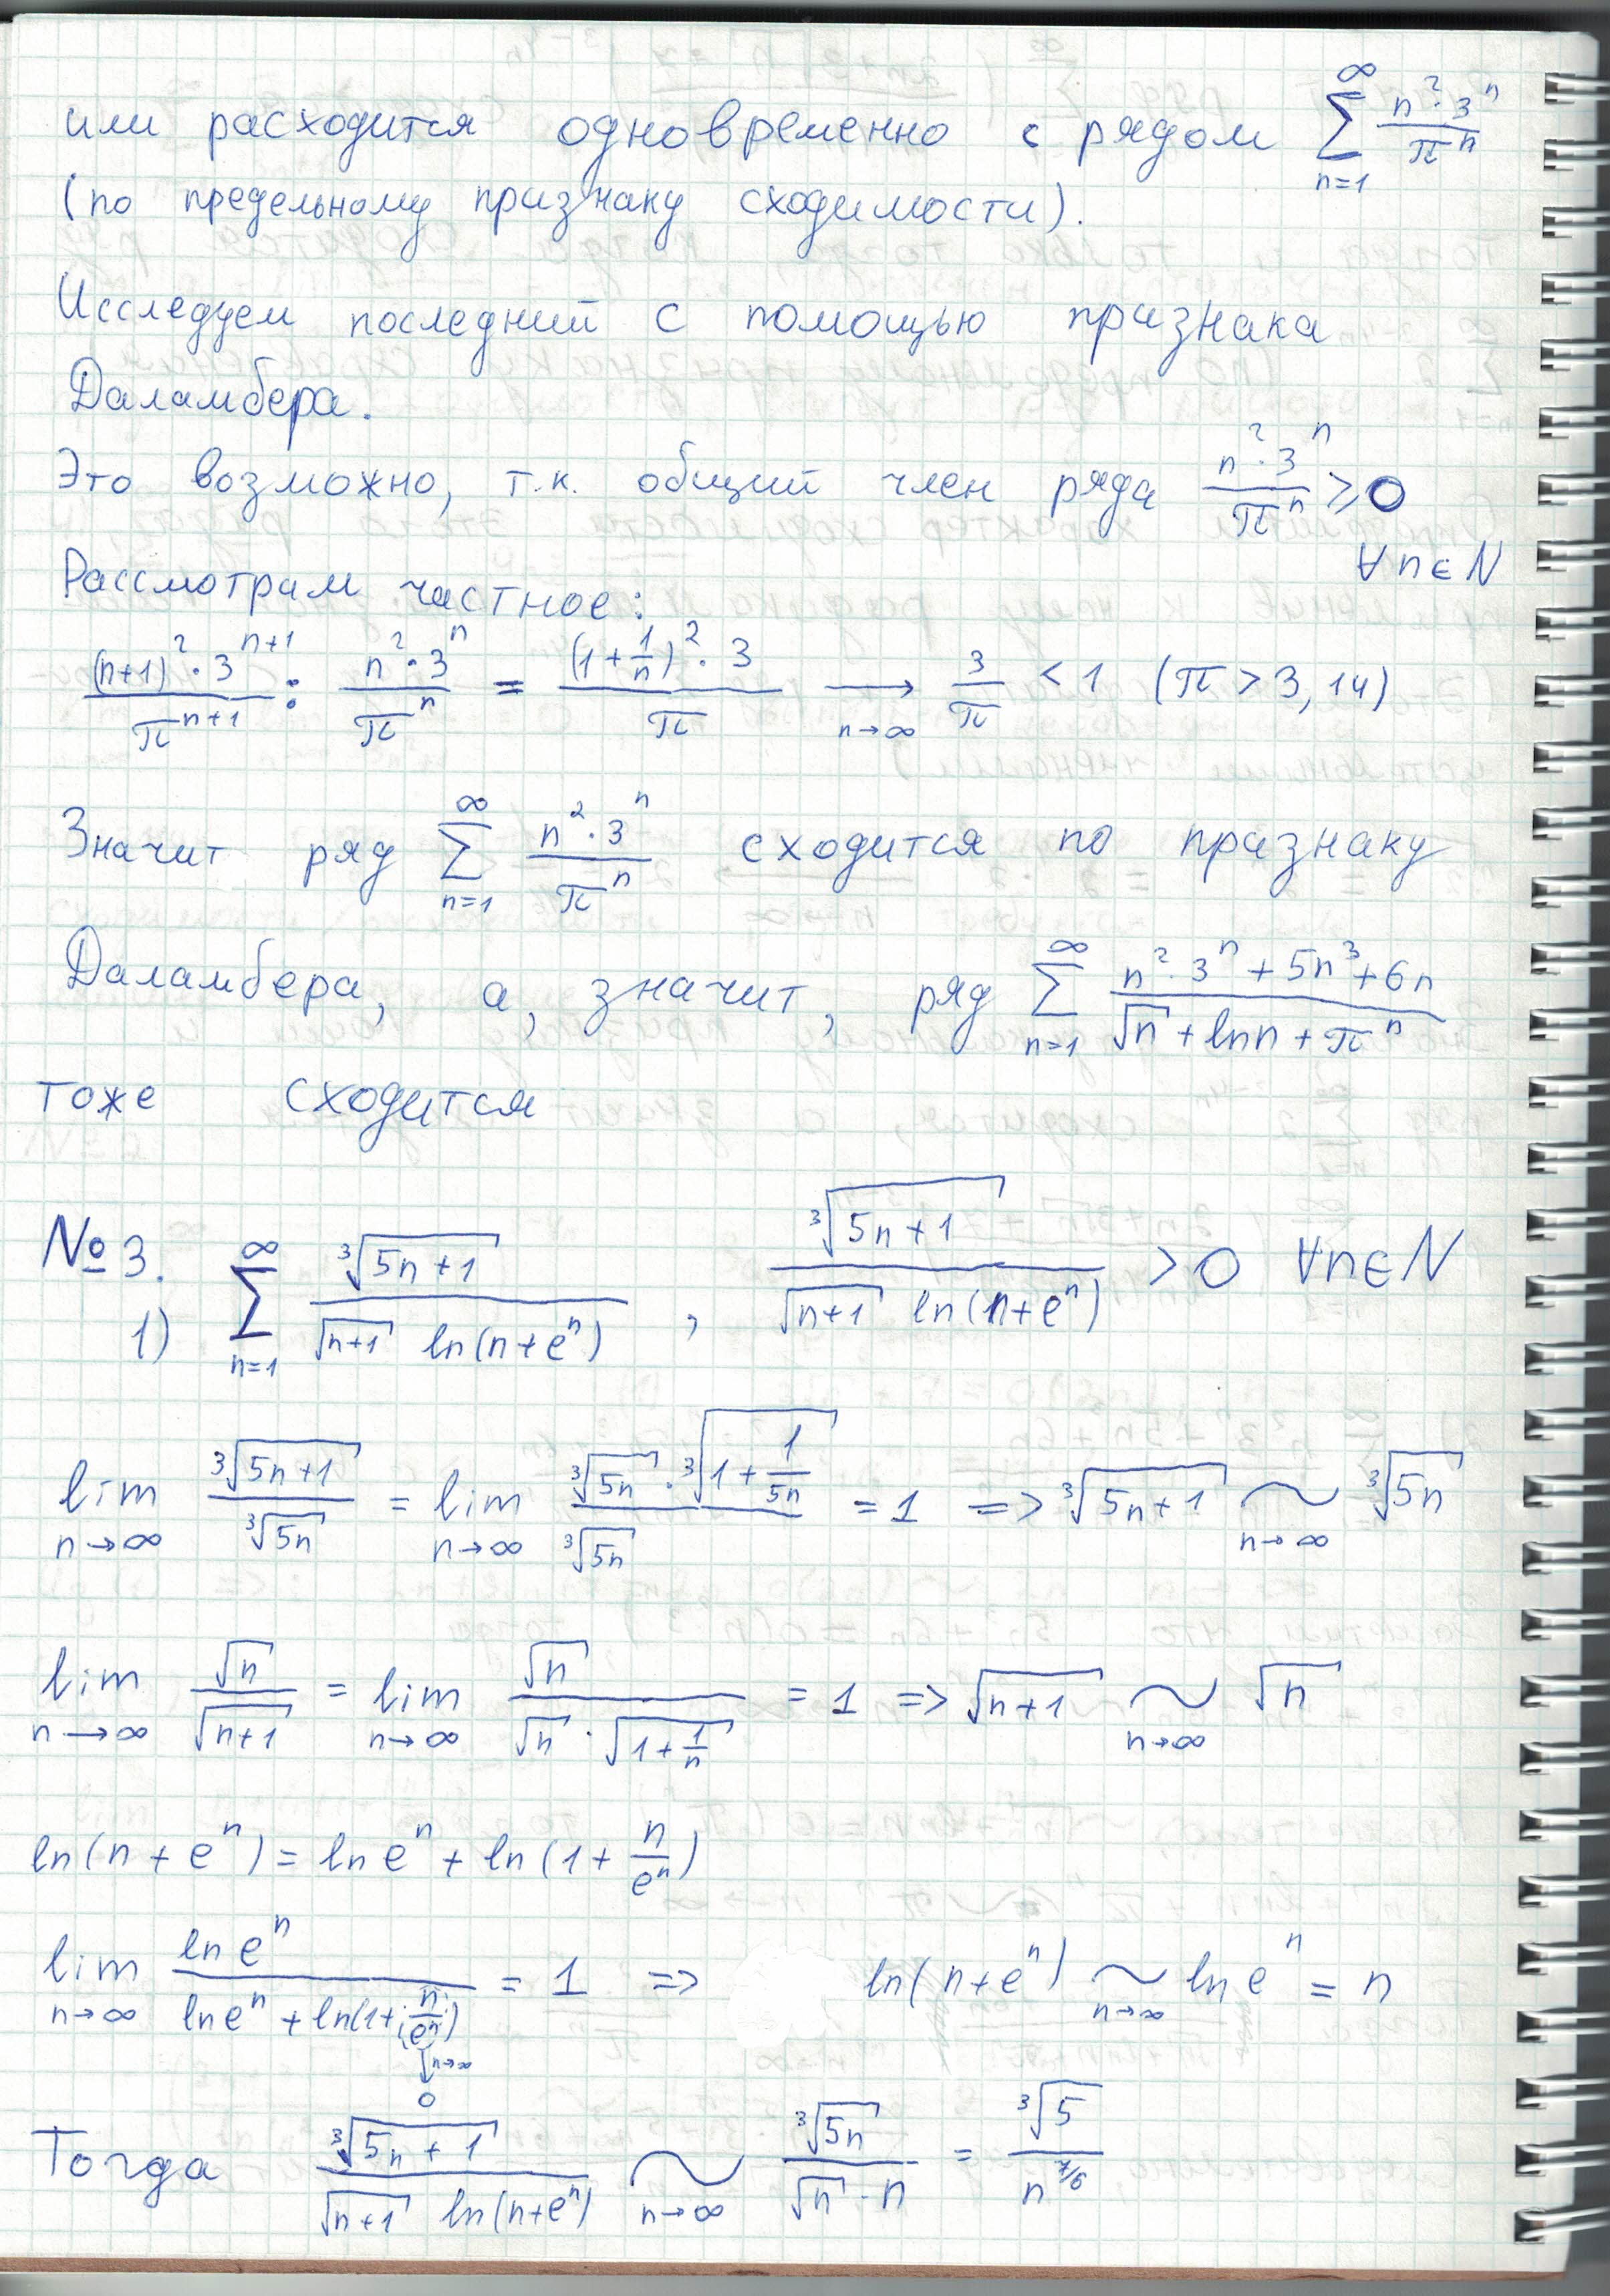 или расходится одновременно с рядом ∑_{n=1}^{∞} (n²·3ⁿ)/(πⁿ)
(по предельному признаку сходимости).
Исследуем последний с помощью признака
Даламбера.
Это возможно, т.к. общий член ряда (n²·3ⁿ)/(πⁿ) ⩾ 0
∀n∈N
Рассмотрим частное:
((n+1)²·3ⁿ⁺¹)/(πⁿ⁺¹) : (n²·3ⁿ)/(πⁿ) = ((1+1/n)²·3)/π →_{n→∞} 3/π < 1 (π > 3,14)
Значит ряд ∑_{n=1}^{∞} (n²·3ⁿ)/(πⁿ) сходится по признаку
Даламбера, а, значит, ряд ∑_{n=1}^{∞} (n²·3ⁿ+5n³+6n)/(√n + ln n + πⁿ)
тоже сходится
№3.
1) ∑_{n=1}^{∞} ∛(5n+1)/(√(n+1) ln(n+eⁿ)) , ∛(5n+1)/(√(n+1) ln(n+eⁿ)) > 0 ∀n∈N
lim_{n→∞} ∛(5n+1)/∛(5n) = lim_{n→∞} (∛(5n)·∛(1+1/(5n)))/∛(5n) = 1 => ∛(5n+1) ~_{n→∞} ∛(5n)
lim_{n→∞} √n/√(n+1) = lim_{n→∞} √n/(√n·√(1+1/n)) = 1 => √(n+1) ~_{n→∞} √n
ln(n+eⁿ) = ln eⁿ + ln(1+n/eⁿ)
lim_{n→∞} ln eⁿ/(ln eⁿ + ln(1+n/eⁿ)) = 1 => ln(n+eⁿ) ~_{n→∞} ln eⁿ = n
↓ n→∞
0
Тогда ∛(5n+1)/(√(n+1) ln(n+eⁿ)) ~_{n→∞} ∛(5n)/(√n·n) = ∛5/n^{7/6}